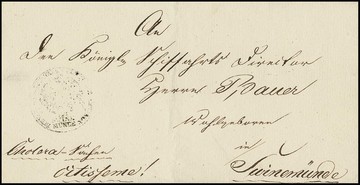 An
Den Königl. Schiffahrts Director
Herrn Bauer
Wohlgeboren
in
Swinemünde
Cholera-Sachen
Citissime!